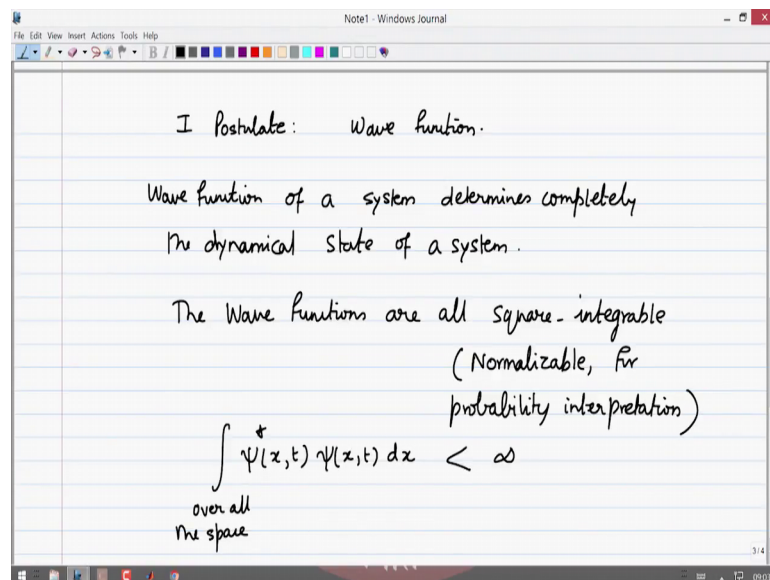 Note1 - Windows Journal
File Edit View Insert Actions Tools Help
B I
I Postulate: Wave function.
Wave function of a system determines completely
the dynamical state of a system.
The Wave functions are all square-integrable
(Normalizable, for
probability interpretation)
∫ ψ*(x,t) ψ(x,t) dx < ∞
over all
the space
3/4